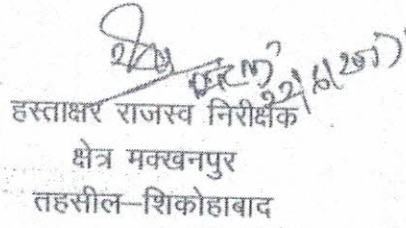 हस्ताक्षर राजस्व निरीक्षक
क्षेत्र मक्खनपुर
तहसील–शिकोहाबाद